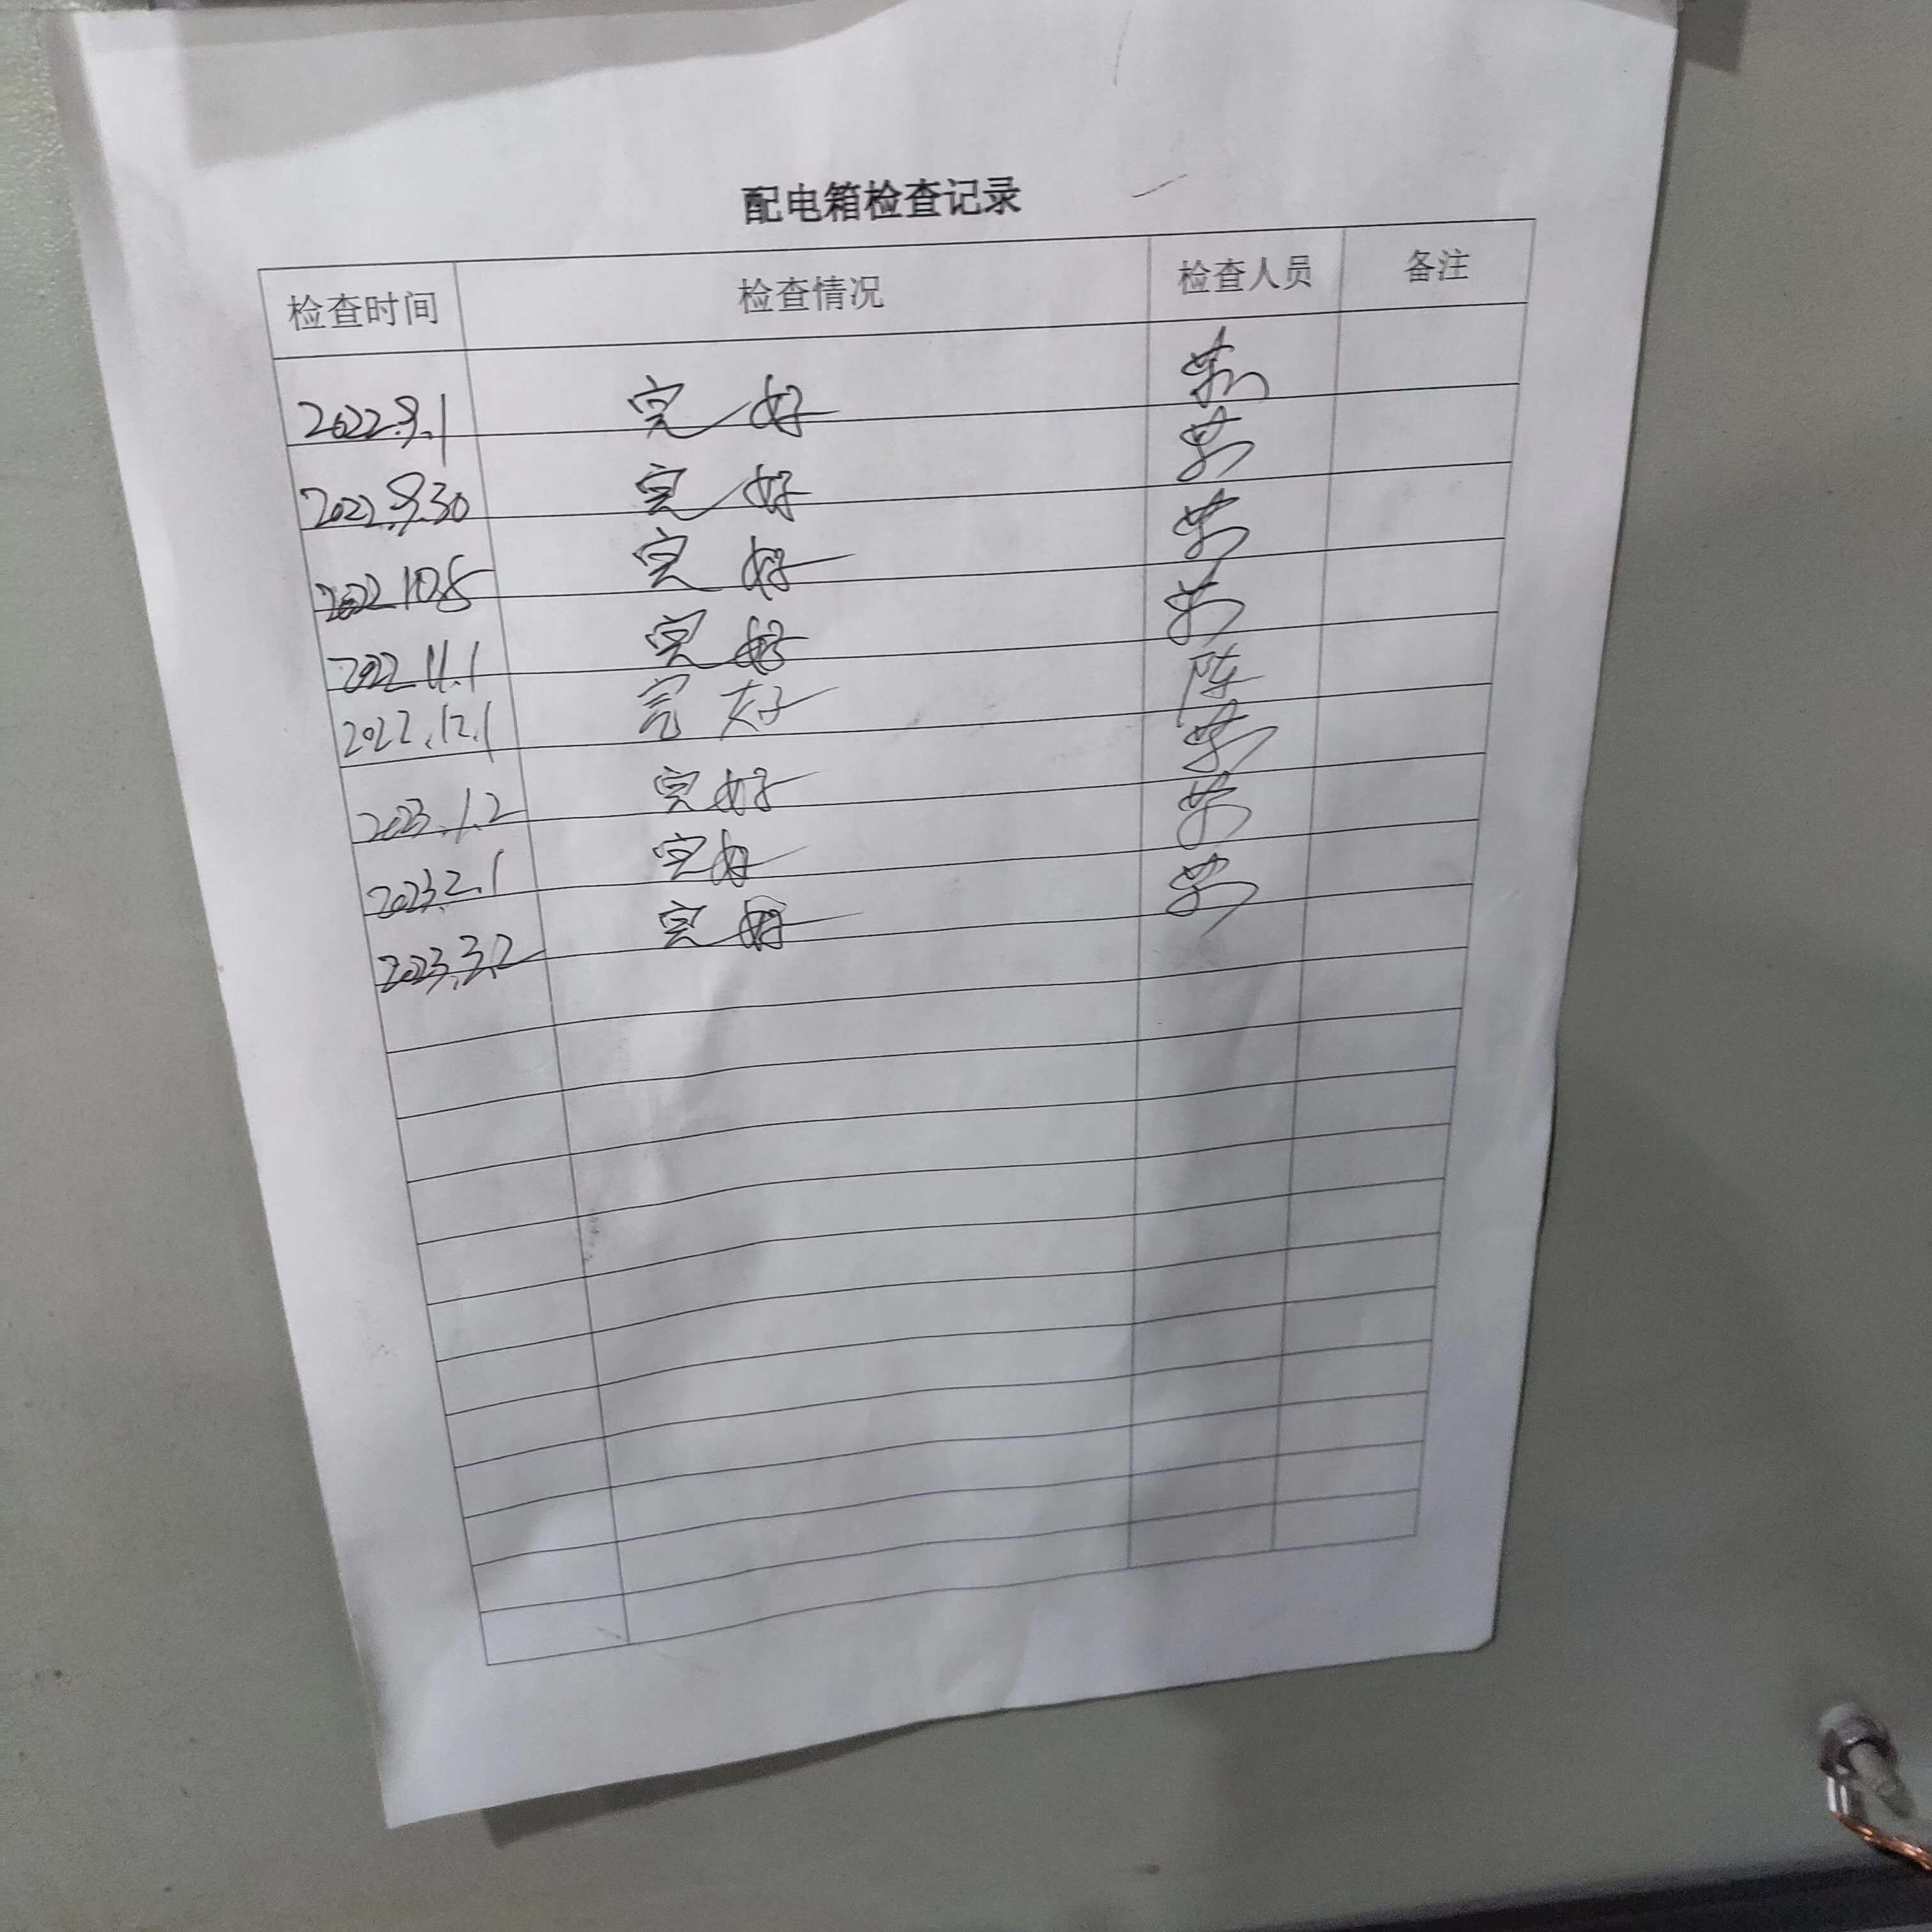 配电箱检查记录
检查时间 检查情况 检查人员 备注
2022.9.1 完好
2022.9.30 完好
2022.10.8 完好
2022.11.1 完好
2022.12.1 完好 陈
2023.1.2 完好
2023.2.1 完好
2023.3.2 完好